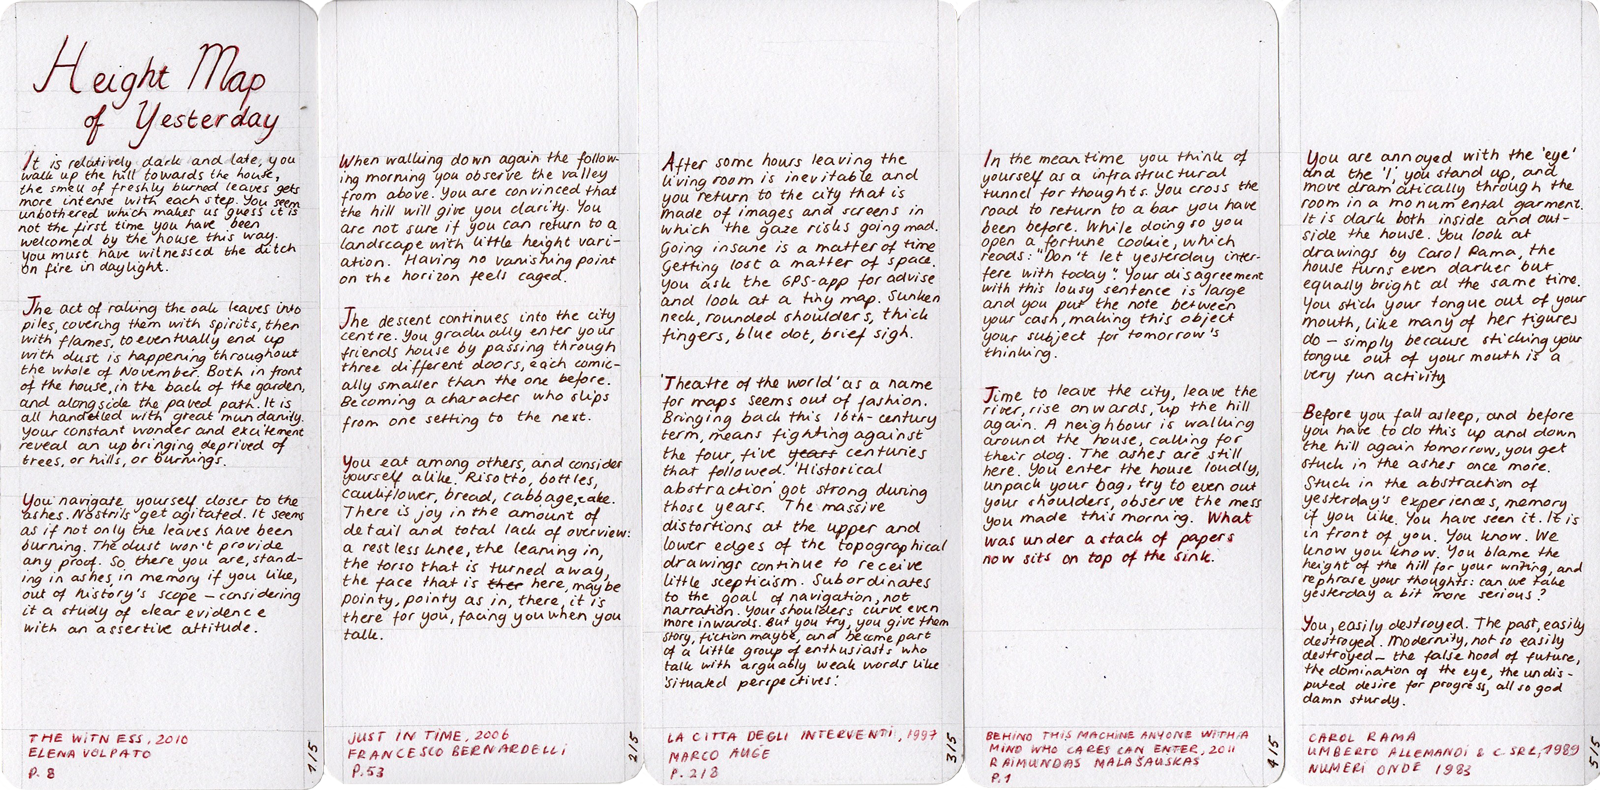 Height Map
of Yesterday
It is relatively dark and late, you
walk up the hill towards the house,
the smell of freshly burned leaves gets
more intense with each step. You seem
unbothered which makes us guess it is
not the first time you have been
welcomed by the house this way.
You must have witnessed the ditch
on fire in daylight.
The act of raking the oak leaves into
piles, covering them with spirits, then
with flames, to eventually end up
with dust is happening throughout
the whole of November. Both in front
of the house, in the back of the garden,
and alongside the paved path. It is
all handelled with great mundanity.
Your constant wonder and excitement
reveal an upbringing deprived of
trees, or hills, or burnings.
You navigate yourself closer to the
ashes. Nostrils get agitated. It seems
as if not only the leaves have been
burning. The dust won't provide
any proof. So, there you are, stand-
ing in ashes, in memory if you like,
out of history's scope – considering
it a study of clear evidence
with an assertive attitude.
THE WITNESS, 2010
ELENA VOLPATO
P. 8
1/5
When walking down again the follow-
ing morning you observe the valley
from above. You are convinced that
the hill will give you clarity. You
are not sure if you can return to a
landscape with little height vari-
ation. Having no vanishing point
on the horizon feels caged.
The descent continues into the city
centre. You gradually enter your
friends house by passing through
three different doors, each comic-
ally smaller than the one before.
Becoming a character who slips
from one setting to the next.
You eat among others, and consider
yourself alike. Risotto, bottles,
cauliflower, bread, cabbage, cake.
There is joy in the amount of
detail and total lack of overview:
a restless knee, the leaning in,
the torso that is turned away,
the face that is ther here, maybe
pointy, pointy as in, there, it is
there for you, facing you when you
talk.
JUST IN TIME, 2006
FRANCESCO BERNARDELLI
P. 53
2/5
After some hours leaving the
living room is inevitable and
you return to the city that is
made of images and screens in
which 'the gaze risks going mad.
Going insane is a matter of time
Getting lost a matter of space.
You ask the GPS-app for advise
and look at a tiny map. Sunken
neck, rounded shoulders, thick
fingers, blue dot, brief sigh.
'Theatre of the world' as a name
for maps seems out of fashion.
Bringing back this 16th-century
term, means fighting against
the four, five years centuries
that followed. 'Historical
abstraction' got strong during
those years. The massive
distortions at the upper and
lower edges of the topographical
drawings continue to receive
little scepticism. Subordinates
to the goal of navigation, not
narration. Your shoulders curve even
more inwards. But you try, you give them
story, fiction maybe, and become part
of a little group of enthusiasts who
talk with arguably weak words like
'situated perspectives'.
LA CITTA DEGLI INTERVENTI, 1997
MARCO AUGE
P. 218
3/5
In the meantime you think of
yourself as a infrastructural
tunnel for thoughts. You cross the
road to return to a bar you have
been before. While doing so you
open a fortune cookie, which
reads: "Don't let yesterday inter-
fere with today". Your disagreement
with this lousy sentence is large
and you put the note between
your cash, making this object
your subject for tomorrow's
thinking.
Time to leave the city, leave the
river, rise onwards, up the hill
again. A neighbour is walking
around the house, calling for
their dog. The ashes are still
here. You enter the house loudly,
unpack your bag, try to even out
your shoulders, observe the mess
you made this morning. What
was under a stack of papers
now sits on top of the sink.
BEHIND THIS MACHINE ANYONE WITH A
MIND WHO CARES CAN ENTER, 2011
RAIMUNDAS MALAŠAUSKAS
P. 1
4/5
You are annoyed with the 'eye'
and the 'I', you stand up, and
move dramatically through the
room in a monumental garment.
It is dark both inside and out-
side the house. You look at
drawings by Carol Rama, the
house turns even darker but
equally bright at the same time.
You stick your tongue out of your
mouth, like many of her figures
do – simply because sticking your
tongue out of your mouth is a
very fun activity
Before you fall asleep, and before
you have to do this up and down
the hill again tomorrow, you get
stuck in the ashes once more.
Stuck in the abstraction of
yesterday's experiences, memory
if you like. You have seen it. It is
in front of you. You know. We
know you know. You blame the
height of the hill for your writing, and
rephrase your thoughts: can we take
yesterday a bit more serious?
You, easily destroyed. The past, easily
destroyed. Modernity, not so easily
destroyed – the falsehood of future,
the domination of the eye, the undis-
puted desire for progress, all so god
damn sturdy.
CAROL RAMA
UMBERTO ALLEMANDI & C. SRL, 1989
NUMERI ONDE 1983
5/5